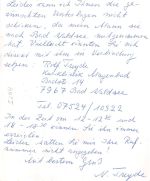 Leider kann ich Ihnen die ge-
wünschten Unterlagen nicht
schicken, da mein Mann sie
nach Bad Waldsee mitgenommen
hat. Vielleicht könnten Sie sich
einmal mit ihm in Verbindung
setzen: Rolf Freyde
Kurklinik Mayenbad
Badstr. 14
7967 Bad Waldsee
Tel. 07524/10522
In der Zeit von 12-13 h und
18-19 h können Sie ihn immer
erreichen.
Leider hatten Sie mir Ihre Ruf-
nummer nicht angegeben!
Mit bestem Gruß
Freyde